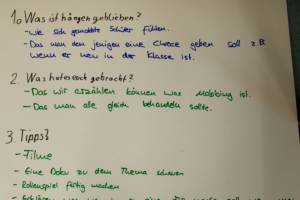 1. Was ist hängen geblieben?
- wie sich gemobbte Schüler fühlen.
- Das man dem jenigen eine Chance geben soll z.B.
wenn er neu in der Klasse ist.
2. Was hat es euch gebracht?
- Das wir erzählen können was Mobbing ist.
- Das man alle gleich behandeln sollte.
3. Tipps?
- Filme
- Eine Doku zu dem Thema schauen
- Rollenspiel fertig machen